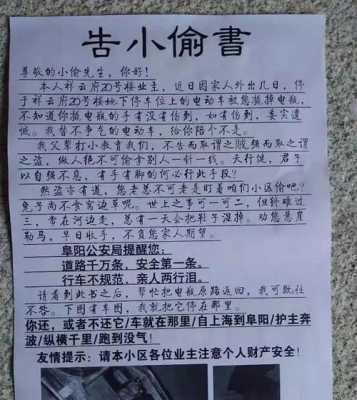 告小偷書
尊敬的小偷先生，你好！
本人祥云府20号楼业主，近日因家人外出几日，停
于祥云府20号楼地下停车位上的电动车被您搬掉电瓶，
不知道你搬电瓶的手有没有伤到，如有伤到，委实遗
憾。我替不争气的电动车，给你陪个不是。
我父辈打小教育我们，不告而取谓之贼强而取之谓
之盗，做人绝不可偷拿别人一针一线。天行健，君子
以自强不息，有手有脚的何必行此手段？
然盗亦有道，您老总不可老是盯着咱们小区偷吧？
兔子尚不食窝边草呢。世上之事可一可二，但转难过
三，常在河边走，总有一天会把鞋子湿掉。劝您悬崖
勒马，早日收手，不负您家人期望。
阜阳公安局提醒您：
道路千万条，安全第一条。
行车不规范，亲人两行泪。
请看到此书之后，帮忙把电瓶原路返回，我可既往
不咎。下图有车图，我就把它停在那里。
你还，或者不还它/车就在那里/自上海到阜阳/护主奔
波/纵横千里/跑到没气！
友情提示：请本小区各位业主注意个人财产安全！